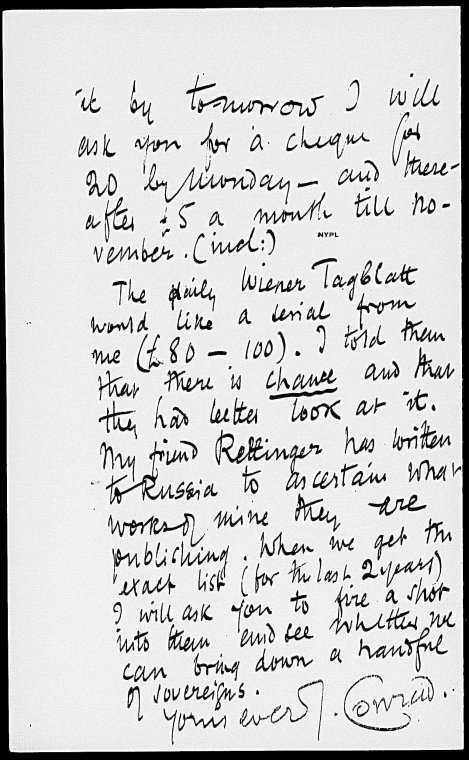 it by tomorrow I will
ask you for a cheque for
20 by Monday — and there-
after £5 a month till no-
vember. (incl:)
NYPL
The daily Wiener Tagblatt
would like a serial from
me (£80 — 100). I told them
that there is Chance and that
they had better look at it.
My friend Rettinger has written
to Russia to ascertain what
works of mine they are
publishing. When we get the
exact list (for the last 2 years)
I will ask you to fire a shot
into them and see whether we
can bring down a handful
of sovereigns.
Yours ever J. Conrad.